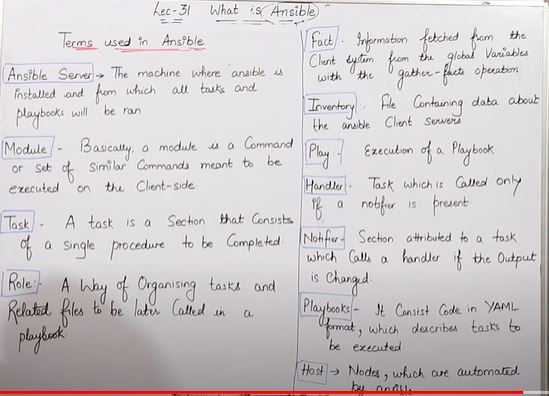 Lec-31 What is Ansible
Terms used in Ansible
Ansible Server → The machine where ansible is
installed and from which all tasks and
playbooks will be ran
Module - Basically, a module is a Command
or set of Similar Commands meant to be
executed on the Client-side
Task - A task is a Section that Consists
of a single procedure to be Completed.
Role:- A Way of Organising tasks and
Related files to be later Called in a
playbook.
Fact - Information fetched from the
Client System from the global Variables
with the gather-facts operation
Inventory : File Containing data about
the ansible Client Servers
Play :- Execution of a Playbook
Handler - Task which is Called only
if a notifier is present
Notifier - Section attributed to a task
which Calls a handler if the Output
is Changed.
Playbooks - It Consist Code in YAML
format, which describes tasks to
be executed
Host → Nodes, which are automated
by